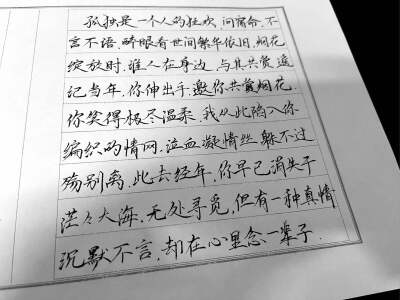 孤独是一个人的狂欢,问宿命,不
言不语,醉眼看世间繁华依旧,烟花
绽放时,谁人在身边,与其共赏,遥
记当年,你伸出手,邀你共赏烟花.
你笑得极尽温柔,我从此陷入你
编织的情网,泣血凝情丝,躲不过
殇别离,此去经年,你早已消失于
茫々大海,无处寻觅,但有一种真情
沉默不言,却在心里念一辈子.